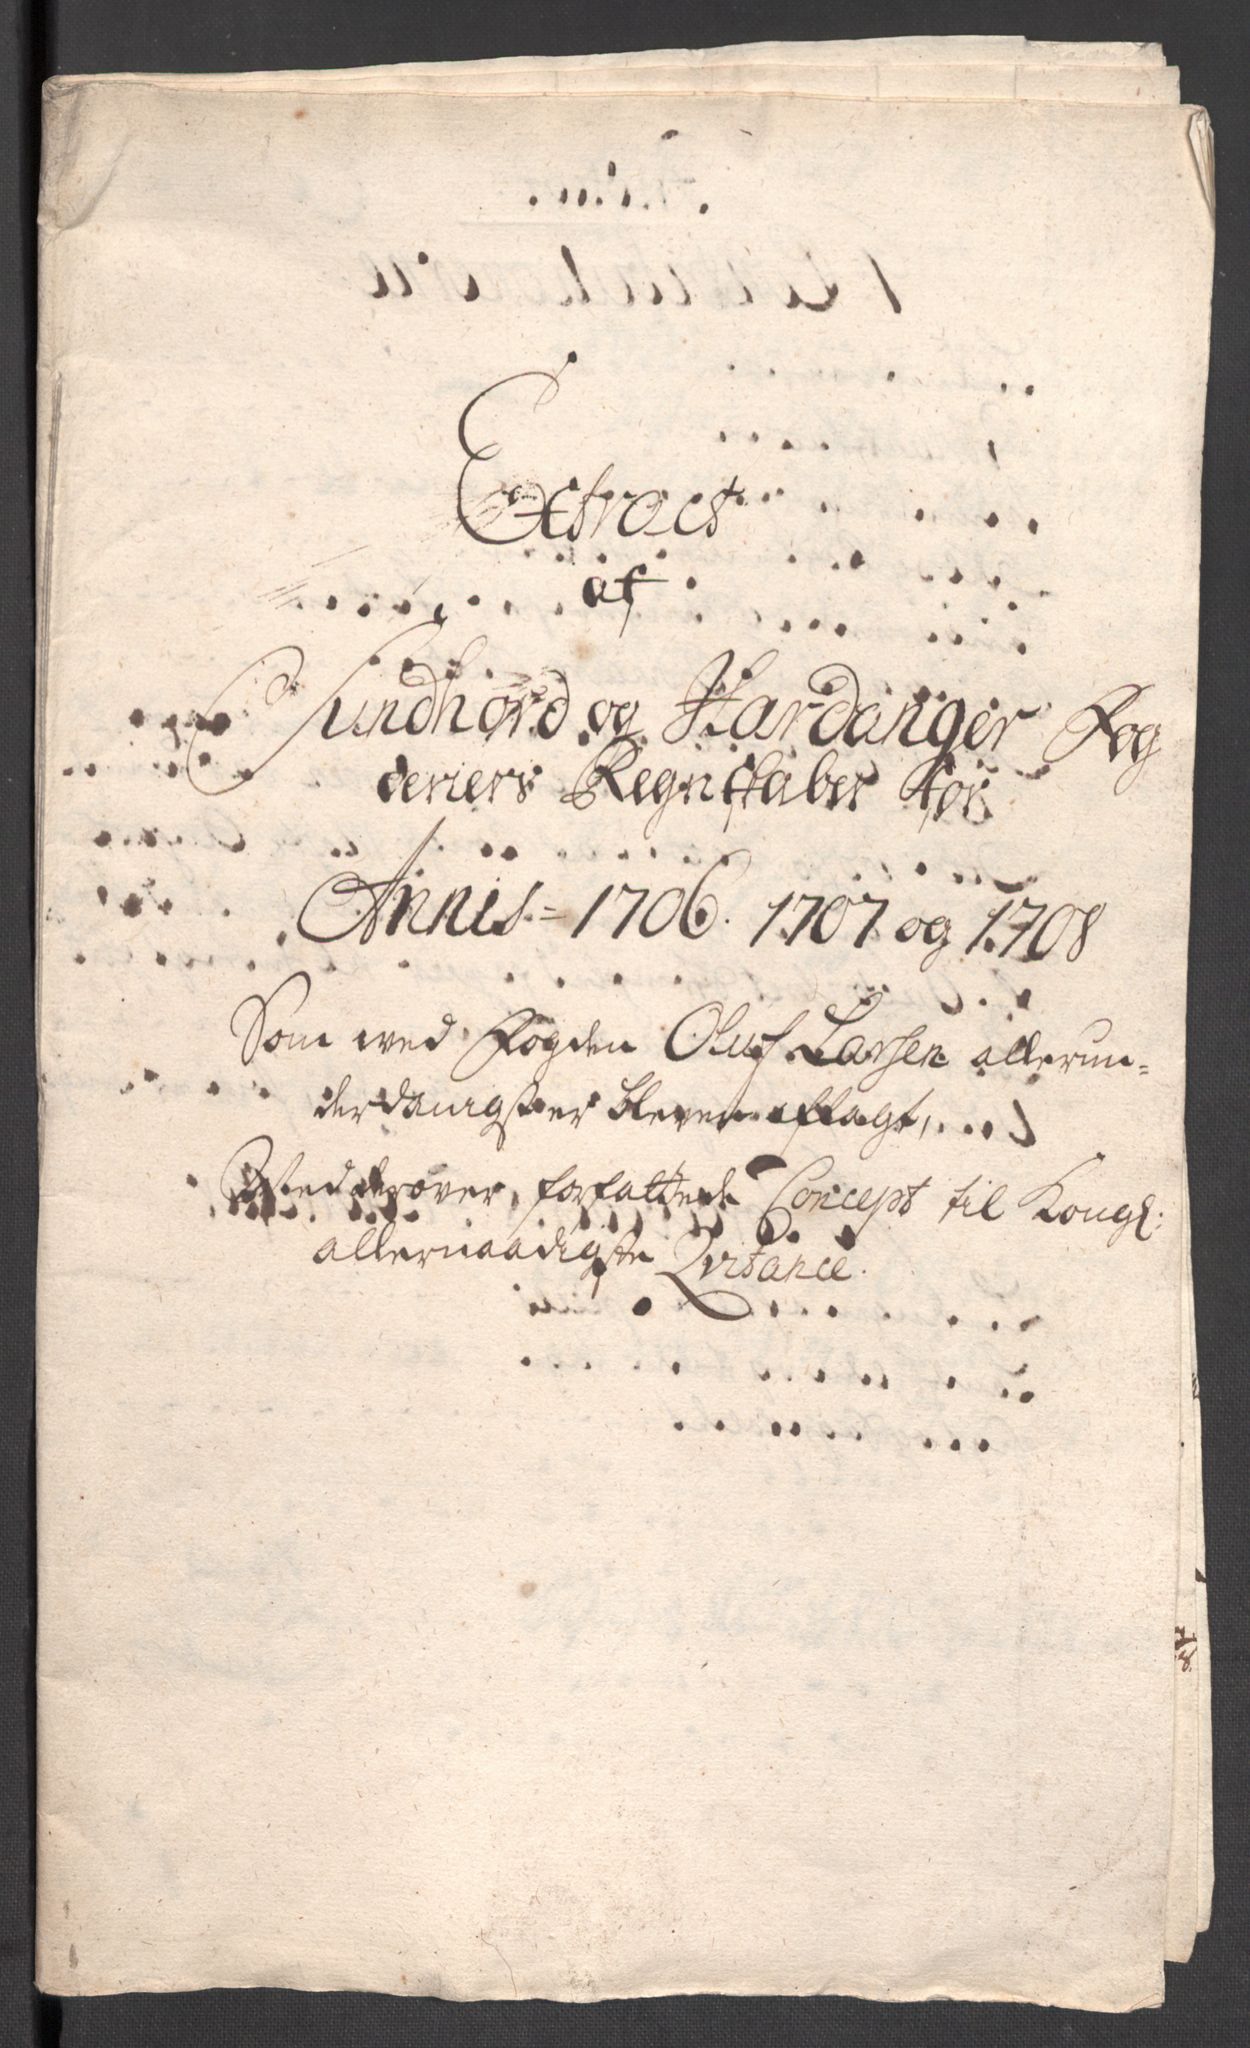 Extract
af
Sundhord og Hardanger Fog
deriers Regnskaber for
Annis = 1706. 1707 og 1708
Som wed Fogden Oluf Larsen allerun=
derdanigst er bleven aflagt,
med derover forfattede Concept til Kongl:
allernaadigste Qvitance.